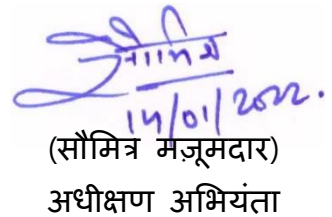 सौमित्र
14/01/2022.
(सौमित्र मज़ूमदार)
अधीक्षण अभियंता